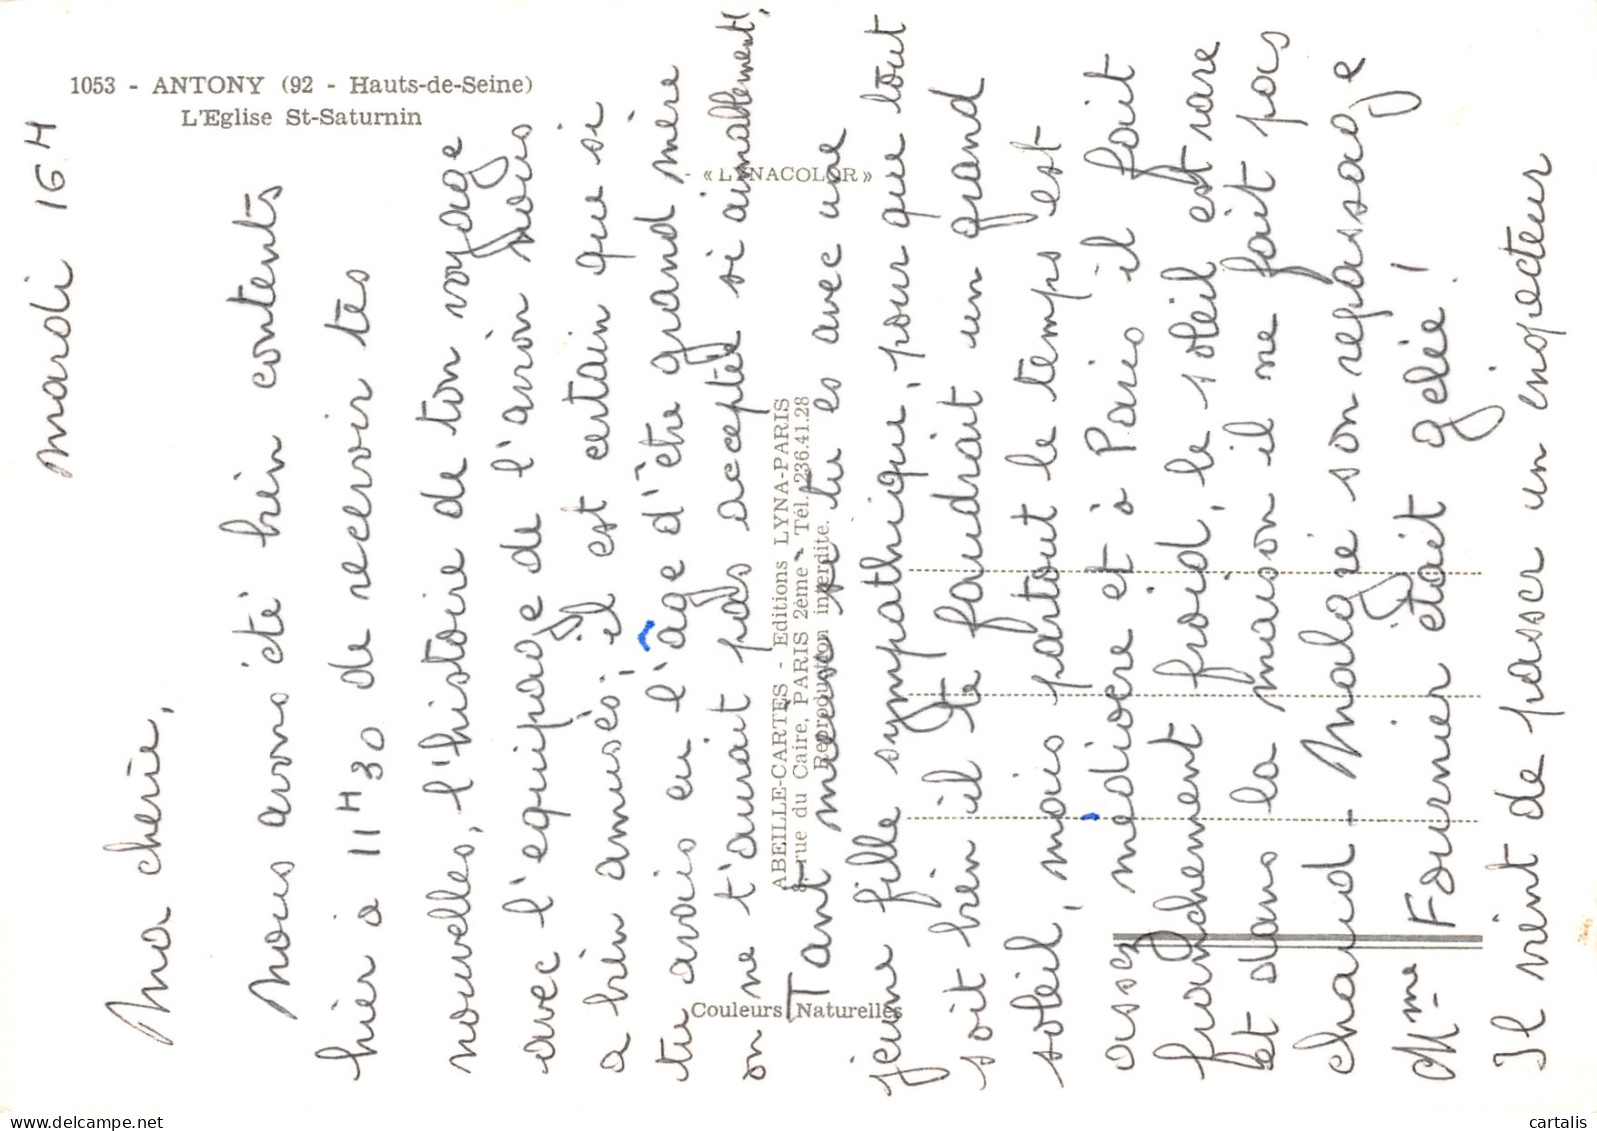 1053 - ANTONY (92 - Hauts-de-Seine)
L'Eglise St-Saturnin
« LYNACOLOR »
ABEILLE-CARTES - Editions LYNA-PARIS
8, rue du Caire, PARIS 2ème - Tél. 236.41.28
Reproduction interdite.
Couleurs Naturelles
mardi 16H
Ma cherie,
Nous avons été bien contents
hier à 11H30 de recevoir tes
nouvelles, l'histoire de ton voyage
avec l'equipage de l'avion nous
a bien amusés, il est certain que si
tu avais eu l'âge d'être grand mère
on ne t'aurait pas accepté si aimablement,
Tant mieux que tu es avec une
jeune fille sympathique, pour que tout
soit bien il te faudrait un grand
soleil, mais partout le temps est
assez médiocre et à Paris il fait
franchement froid, le soleil est rare
et dans la maison il ne fait pas
chaud - Malgré son repassage
Mme Fournier était gelée !
Il vient de passer un inspecteur
cartalis